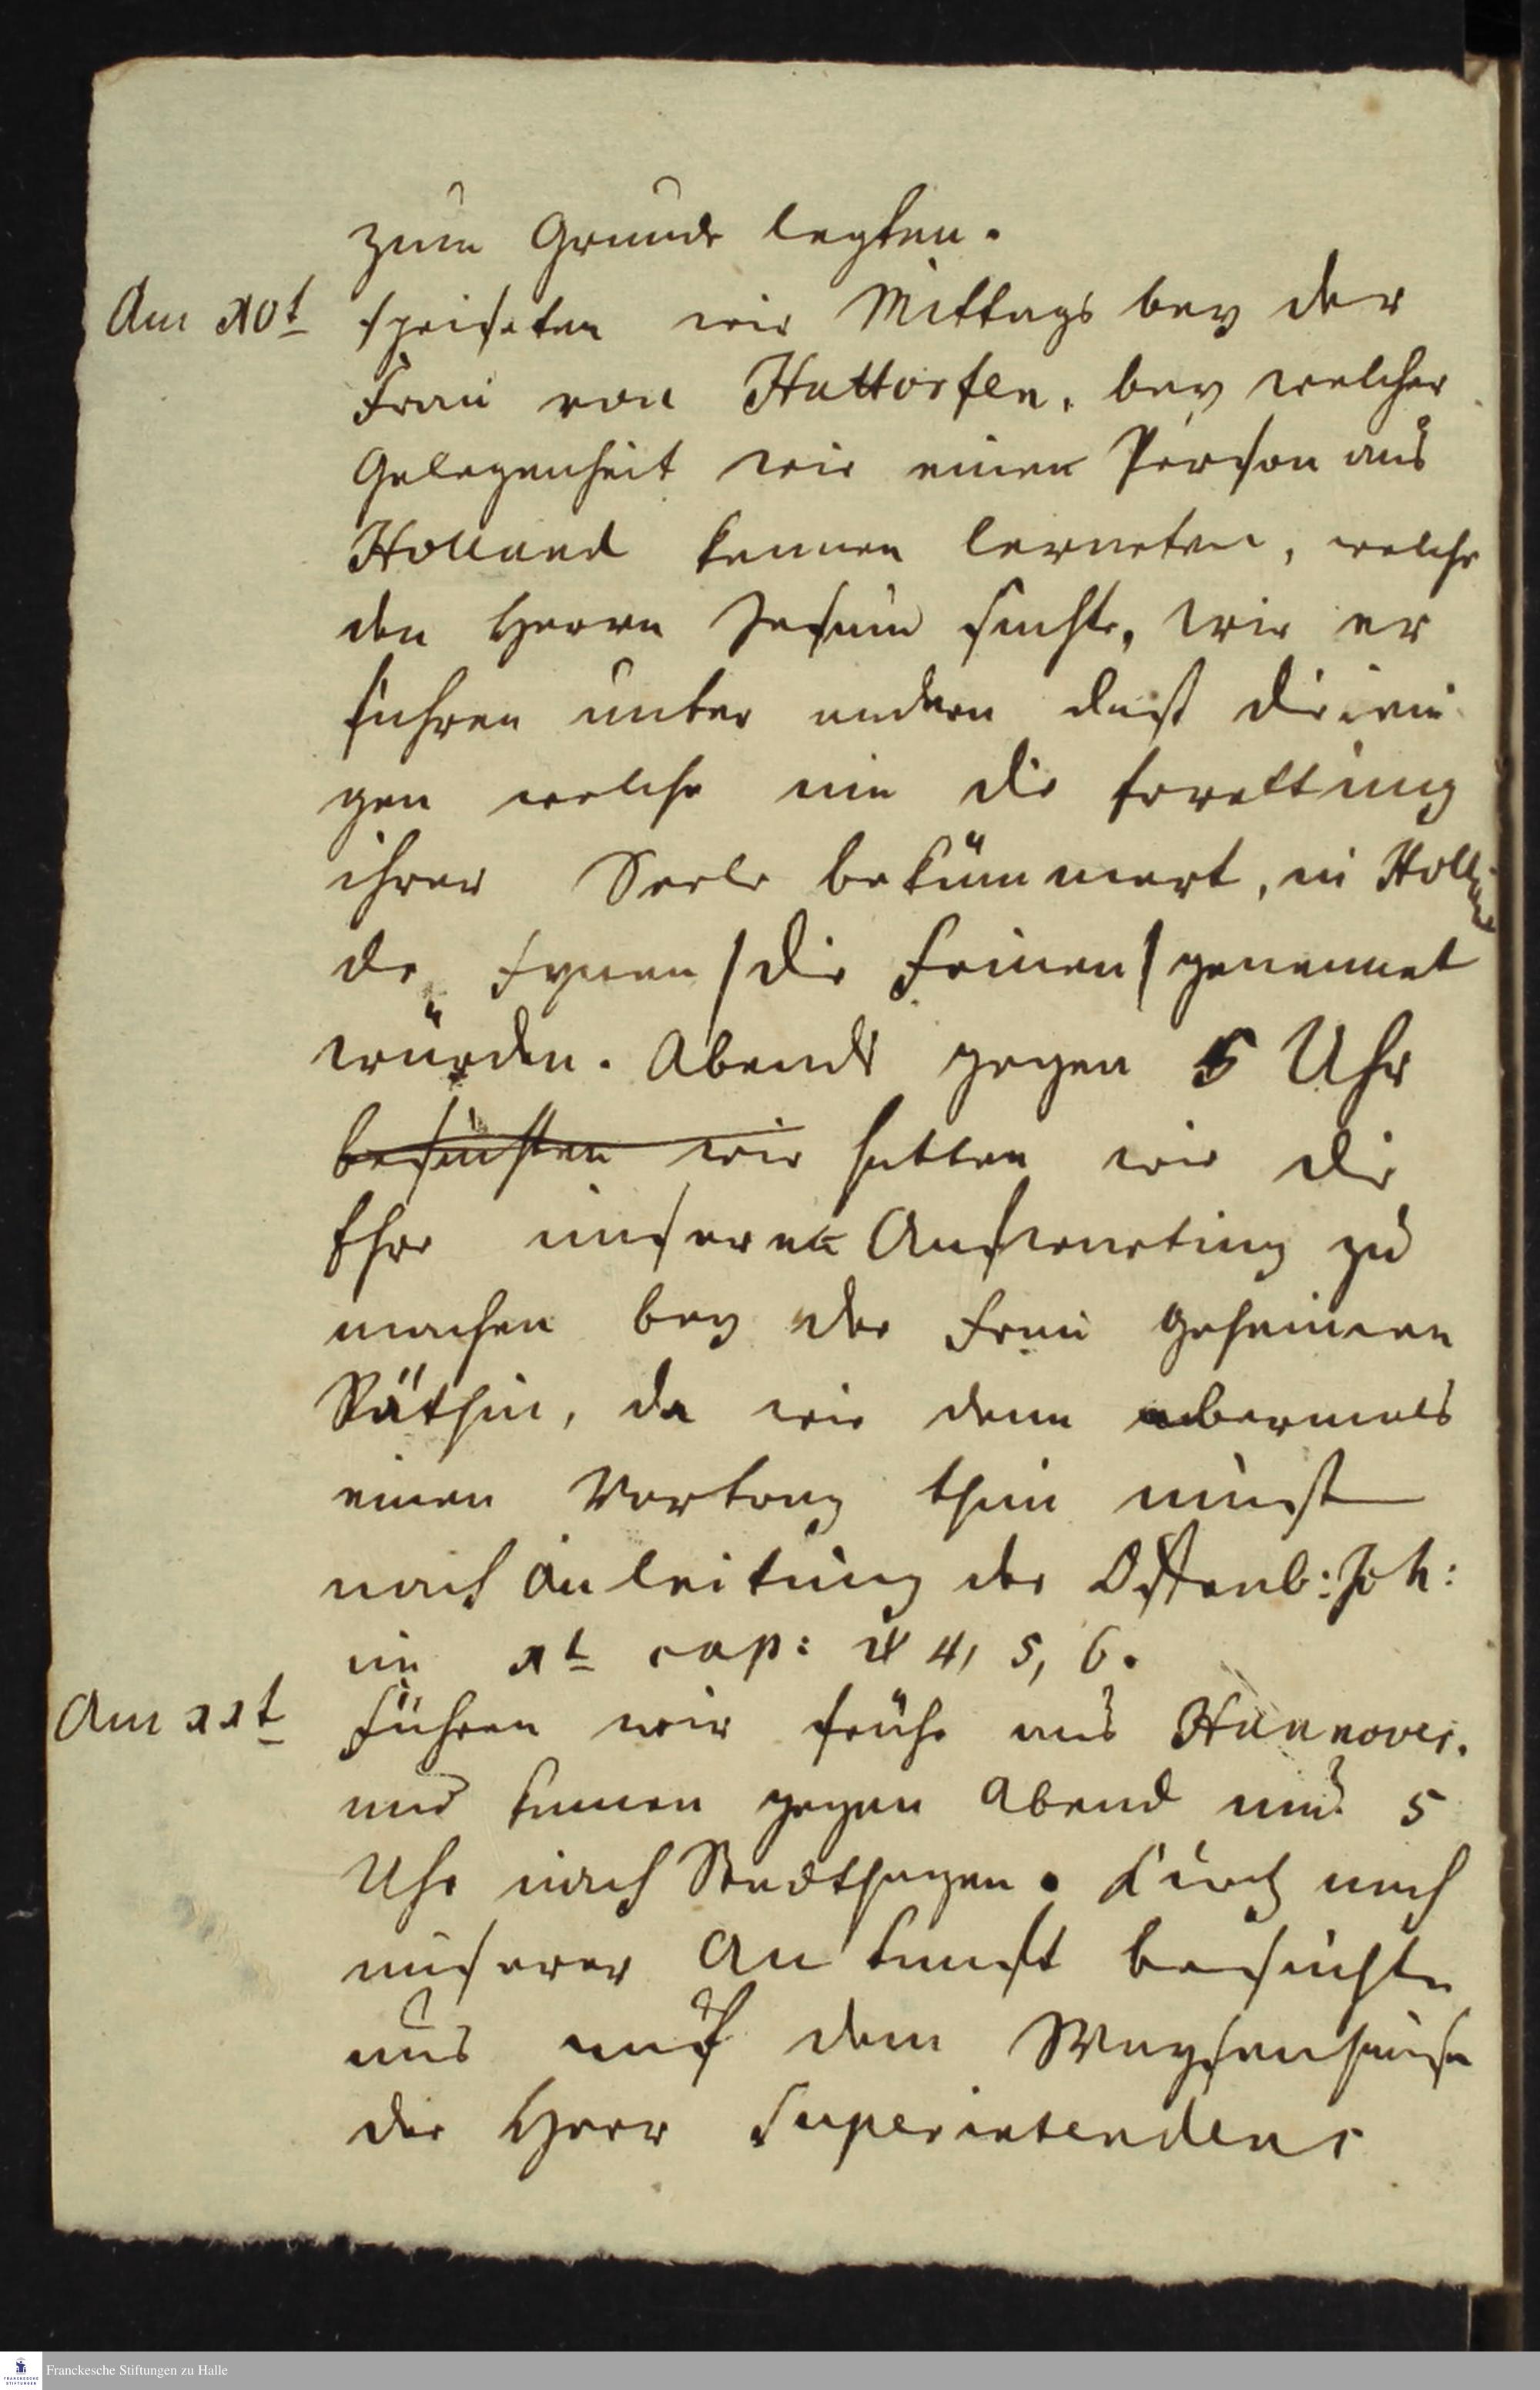 zum Grunde legten.
Am 10t speiseten wir Mittags bey der
Frau von Hattorfen, bey welcher
Gelegenheit wir einen Person aus
Holland kennen lerneten, welche
den Herrn Jesum suchte, wir er
fuhren unter andern dasß diejeni
gen welche um die Errettung
ihrer Seele bekümmert, in Holland
de Fynen /die Feinen/ genennet
würden. Abends gegen 5 Uhr
besuchten wir hatten wir die
Ehre unsere Aufwartung zu
machen bey der Frau geheimen
Räthin, da wir denn abermals
einen Vortrag thun musten
nach Anleitung der Offenb: Joh:
im 1t cap: v 4, 5, 6.
Am 11t fuhren wir frühe aus Hannover.
und kamen gegen Abend um 5
Uhr nach Stadthagen. Kurtz nach
unserer Ankunft besuchte
uns auf dem Waysenhause
der Herr Superintendens
Franckesche Stiftungen zu Halle